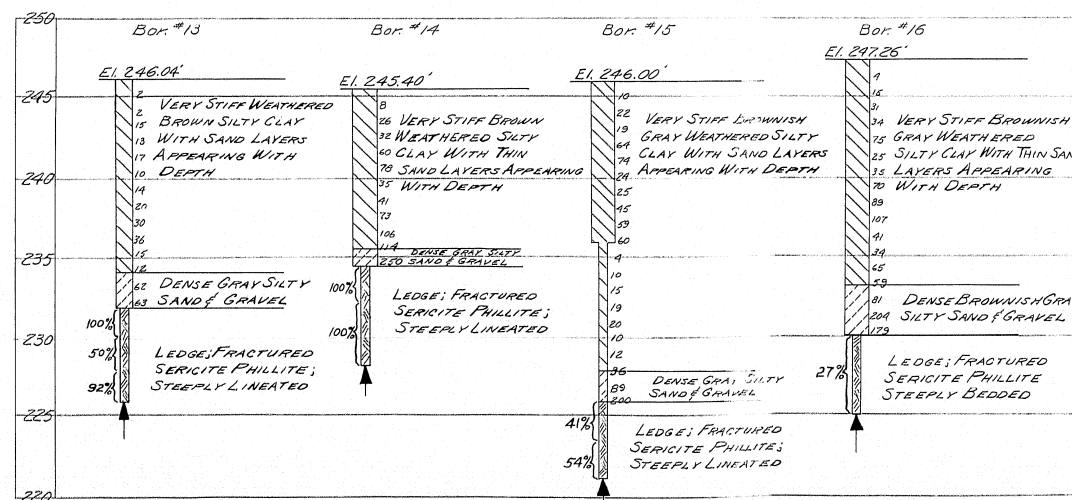 250
245
240
235
230
225
220
Bor. #13
El. 246.04'
2
2
15
13
17
10
14
20
30
36
15
12
62
63
VERY STIFF WEATHERED
BROWN SILTY CLAY
WITH SAND LAYERS
APPEARING WITH
DEPTH
DENSE GRAY SILTY
SAND & GRAVEL
100%
50%
92%
LEDGE; FRACTURED
SERICITE PHILLITE;
STEEPLY LINEATED
Bor. #14
El. 245.40'
8
26
32
60
78
35
41
73
106
114
250
VERY STIFF BROWN
WEATHERED SILTY
CLAY WITH THIN
SAND LAYERS APPEARING
WITH DEPTH
DENSE GRAY SILTY
SAND & GRAVEL
100%
100%
LEDGE; FRACTURED
SERICITE PHILLITE;
STEEPLY LINEATED
Bor. #15
El. 246.00'
10
22
19
64
74
24
25
45
59
60
4
10
15
19
20
10
12
36
89
200
VERY STIFF BROWNISH
GRAY WEATHERED SILTY
CLAY WITH SAND LAYERS
APPEARING WITH DEPTH
DENSE GRAY SILTY
SAND & GRAVEL
41%
54%
LEDGE; FRACTURED
SERICITE PHILLITE;
STEEPLY LINEATED
Bor. #16
El. 247.26'
4
15
31
34
75
25
35
70
89
107
41
34
65
59
81
204
179
VERY STIFF BROWNISH
GRAY WEATHERED
SILTY CLAY WITH THIN SAN
LAYERS APPEARING
WITH DEPTH
DENSE BROWNISH GRA
SILTY SAND & GRAVEL
27%
LEDGE; FRACTURED
SERICITE PHILLITE
STEEPLY BEDDED